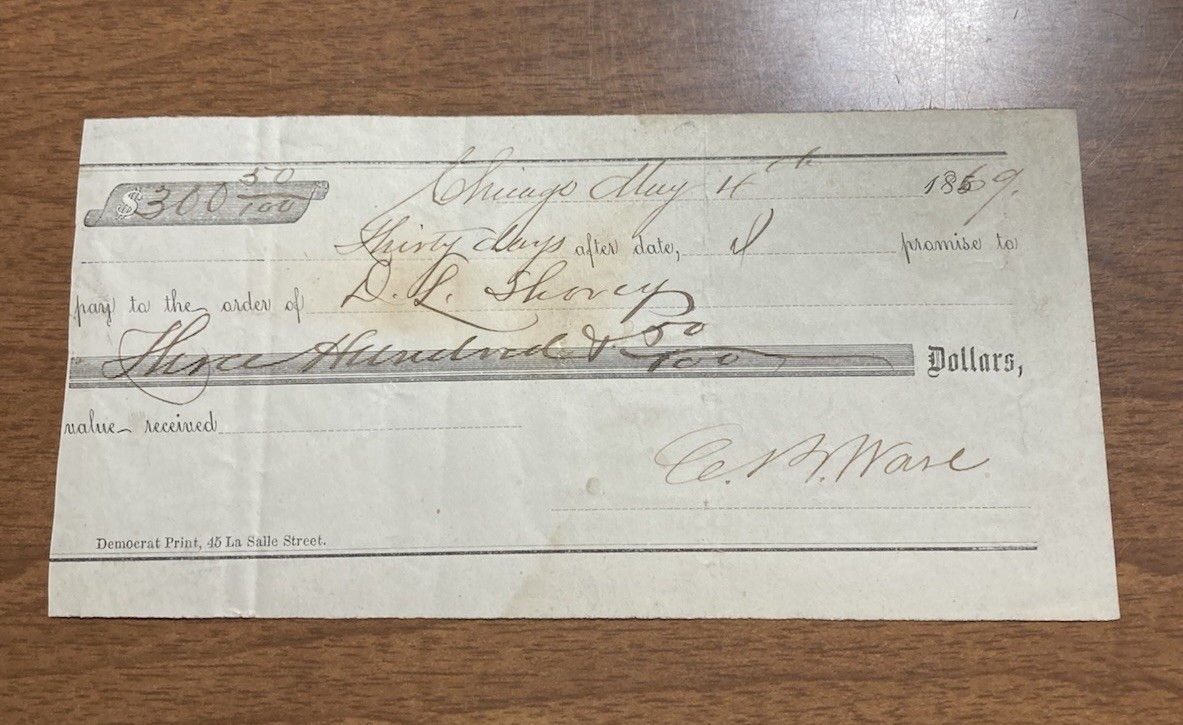 $300 50/100 Chicago May 4th 1869.
Thirty days after date, I promise to
pay to the order of D. L. Shorey
Three Hundred & 50/100 Dollars,
value received
C. B. Ware
Democrat Print, 45 La Salle Street.